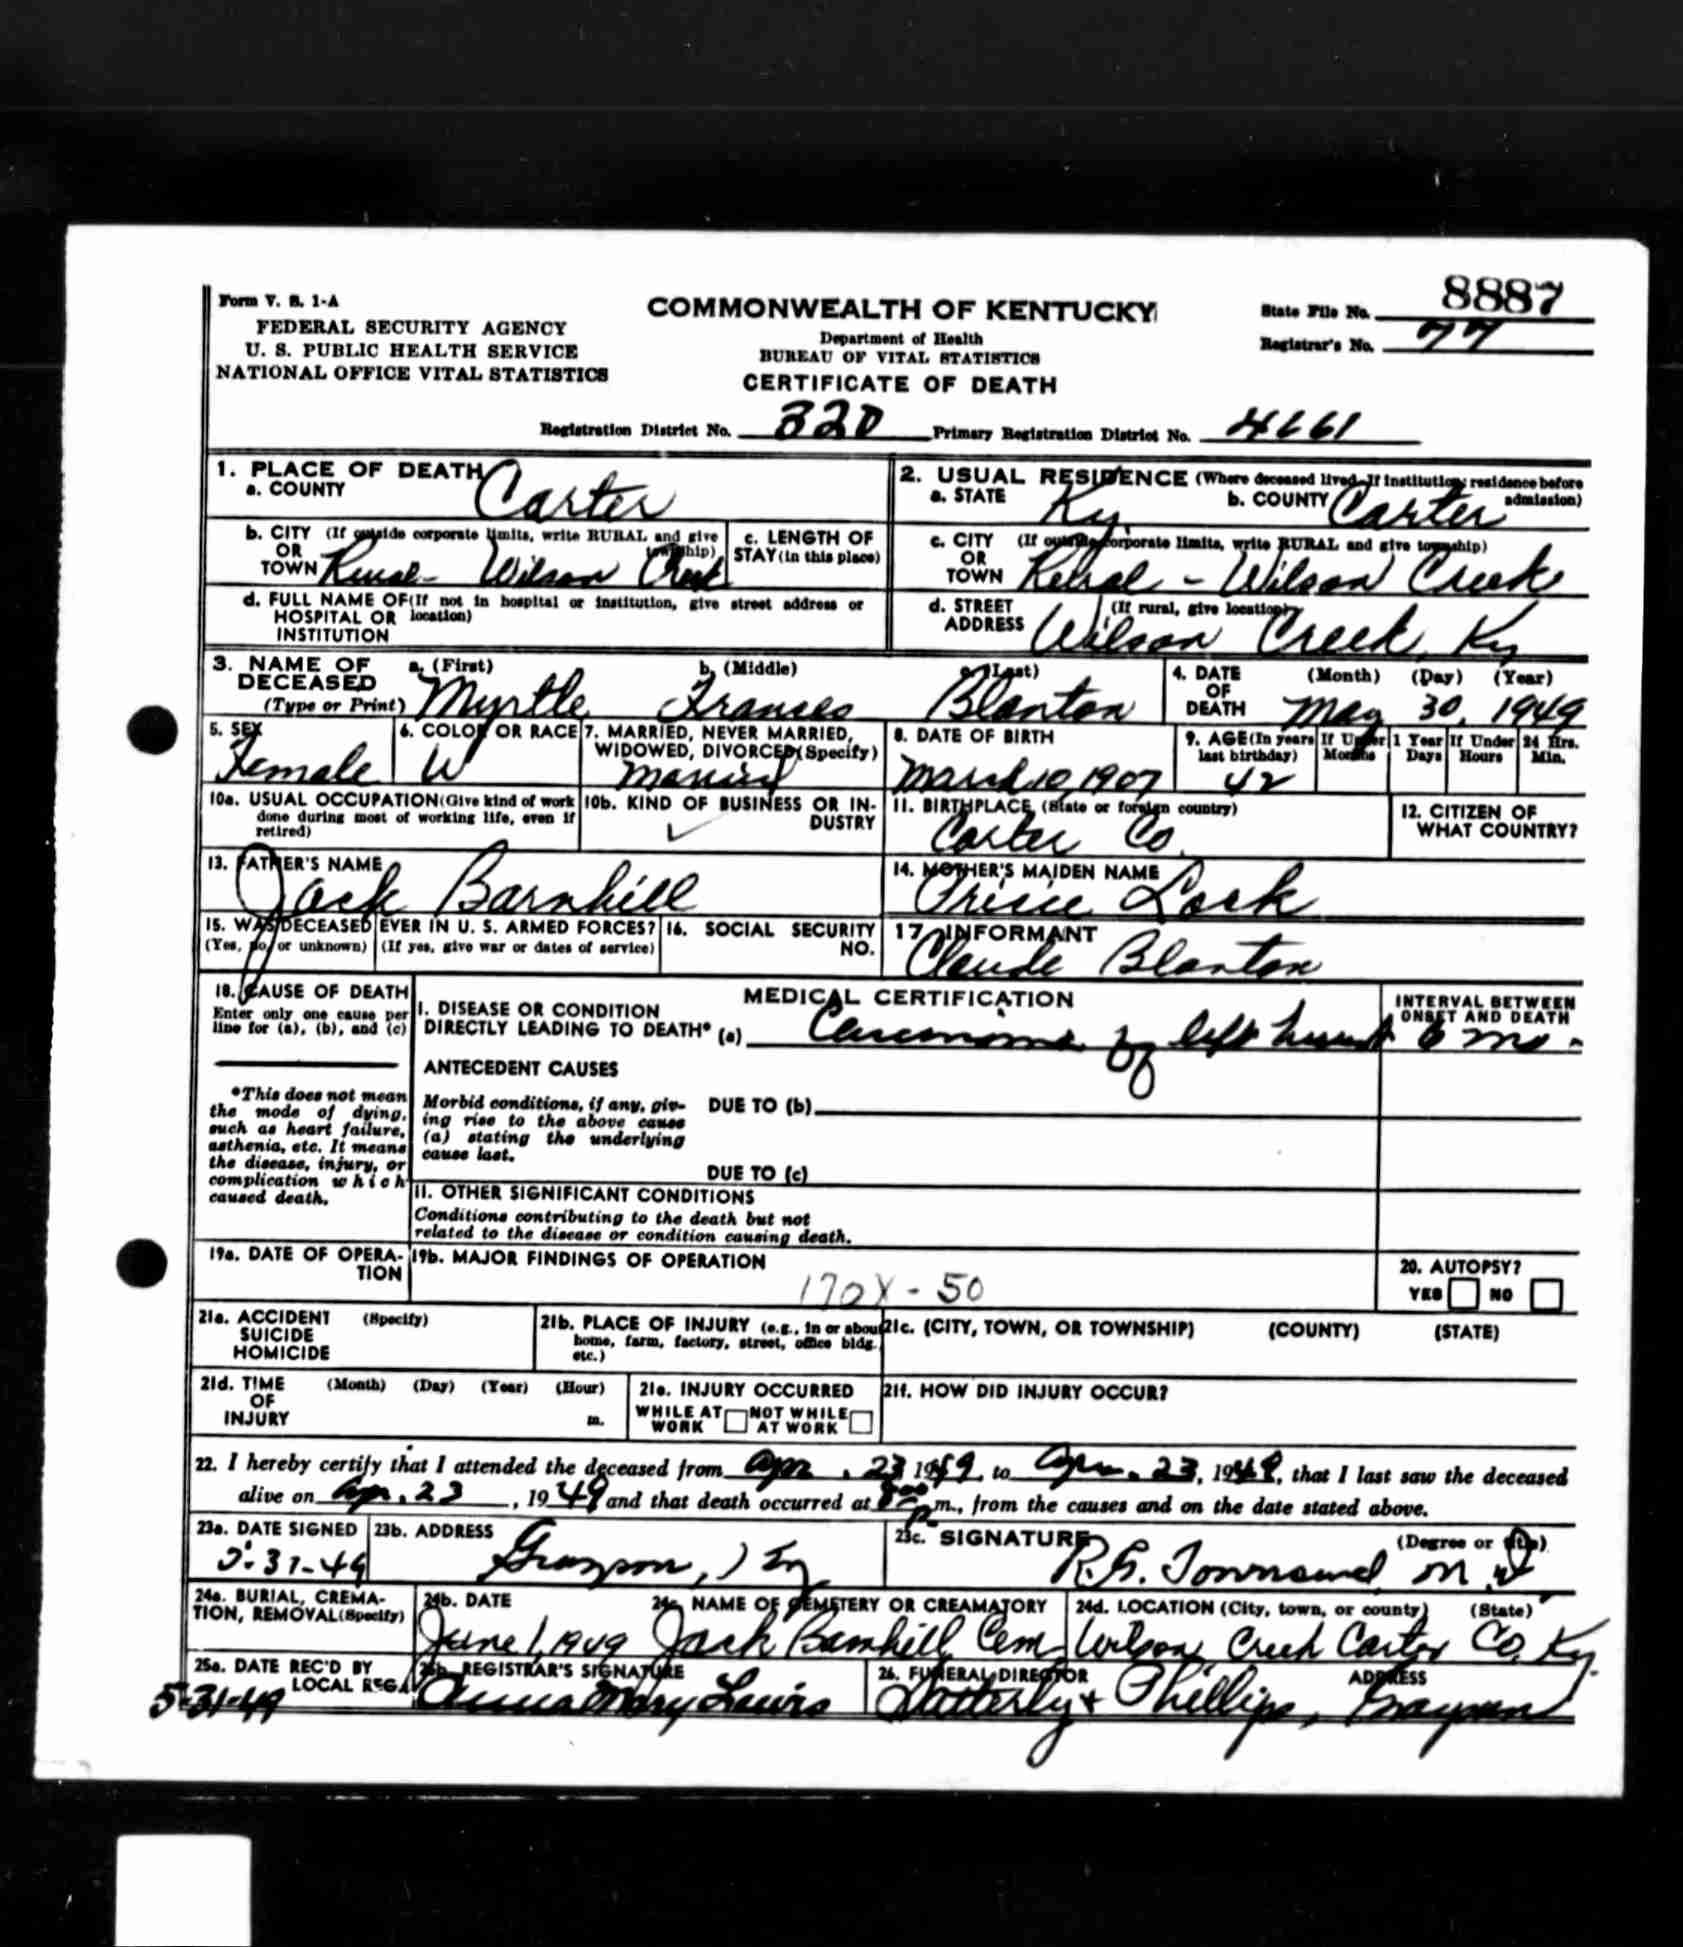 Form V. S. 1-A
FEDERAL SECURITY AGENCY
U. S. PUBLIC HEALTH SERVICE
NATIONAL OFFICE VITAL STATISTICS
COMMONWEALTH OF KENTUCKY
Department of Health
BUREAU OF VITAL STATISTICS
CERTIFICATE OF DEATH
State File No. 8887
Registrar's No. 77
Registration District No. 320 Primary Registration District No. 4661
1. PLACE OF DEATH
a. COUNTY Carter
2. USUAL RESIDENCE (Where deceased lived. If institution: residence before admission)
a. STATE Ky. b. COUNTY Carter
b. CITY (If outside corporate limits, write RURAL and give township)
OR TOWN Rural - Wilson Creek
c. LENGTH OF STAY (in this place)
c. CITY (If outside corporate limits, write RURAL and give township)
OR TOWN Rural - Wilson Creek
d. FULL NAME OF (If not in hospital or institution, give street address or location)
HOSPITAL OR INSTITUTION
d. STREET ADDRESS (If rural, give location)
Wilson Creek, Ky
3. NAME OF DECEASED (Type or Print)
a. (First) b. (Middle) c. (Last)
Myrtle Frances Blanton
4. DATE OF DEATH (Month) (Day) (Year)
May 30, 1949
5. SEX Female
6. COLOR OR RACE W
7. MARRIED, NEVER MARRIED, WIDOWED, DIVORCED (Specify)
Married
8. DATE OF BIRTH
March 10, 1907
9. AGE (In years last birthday) 42
If Under 1 Year Months Days
If Under 24 Hrs. Hours Min.
10a. USUAL OCCUPATION (Give kind of work done during most of working life, even if retired)
10b. KIND OF BUSINESS OR INDUSTRY
11. BIRTHPLACE (State or foreign country)
Carter Co.
12. CITIZEN OF WHAT COUNTRY?
13. FATHER'S NAME
Jack Barnhill
14. MOTHER'S MAIDEN NAME
Lock
15. WAS DECEASED EVER IN U. S. ARMED FORCES?
(Yes, no, or unknown) (If yes, give war or dates of service)
16. SOCIAL SECURITY NO.
17. INFORMANT
Claude Blanton
18. CAUSE OF DEATH
Enter only one cause per line for (a), (b), and (c)
MEDICAL CERTIFICATION
INTERVAL BETWEEN ONSET AND DEATH
I. DISEASE OR CONDITION
DIRECTLY LEADING TO DEATH* (a) Carcinoma of left breast 6 mo -
*This does not mean the mode of dying, such as heart failure, asthenia, etc. It means the disease, injury, or complication which caused death.
ANTECEDENT CAUSES
Morbid conditions, if any, giving rise to the above cause (a) stating the underlying cause last.
DUE TO (b)
DUE TO (c)
II. OTHER SIGNIFICANT CONDITIONS
Conditions contributing to the death but not related to the disease or condition causing death.
19a. DATE OF OPERATION
19b. MAJOR FINDINGS OF OPERATION
170X - 50
20. AUTOPSY?
YES NO
21a. ACCIDENT SUICIDE HOMICIDE (Specify)
21b. PLACE OF INJURY (e.g., in or about home, farm, factory, street, office bldg. etc.)
21c. (CITY, TOWN, OR TOWNSHIP) (COUNTY) (STATE)
21d. TIME OF INJURY (Month) (Day) (Year) (Hour) m.
21e. INJURY OCCURRED
WHILE AT WORK NOT WHILE AT WORK
21f. HOW DID INJURY OCCUR?
22. I hereby certify that I attended the deceased from Apr. 23 1949, to Apr. 23, 1949, that I last saw the deceased
alive on Apr. 23, 1949 and that death occurred at 8:00 p m., from the causes and on the date stated above.
23a. DATE SIGNED
5-31-49
23b. ADDRESS
Grayson, Ky
23c. SIGNATURE (Degree or title)
R. G. Townsend, M.D
24a. BURIAL, CREMATION, REMOVAL (Specify)
24b. DATE
June 1, 1949
24c. NAME OF CEMETERY OR CREAMATORY
Jack Barnhill Cem
24d. LOCATION (City, town, or county) (State)
Wilson Creek Carter Co. Ky.
25a. DATE REC'D BY LOCAL REG.
5-31-49
25b. REGISTRAR'S SIGNATURE
Mary Lewis
26. FUNERAL DIRECTOR ADDRESS
& Phillips, Grayson